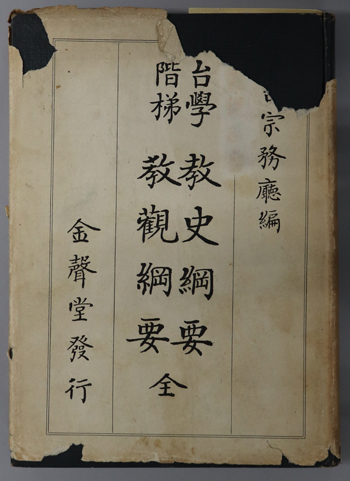 宗務廳編
台學階梯
教史綱要
教觀綱要
全
金聲堂發行